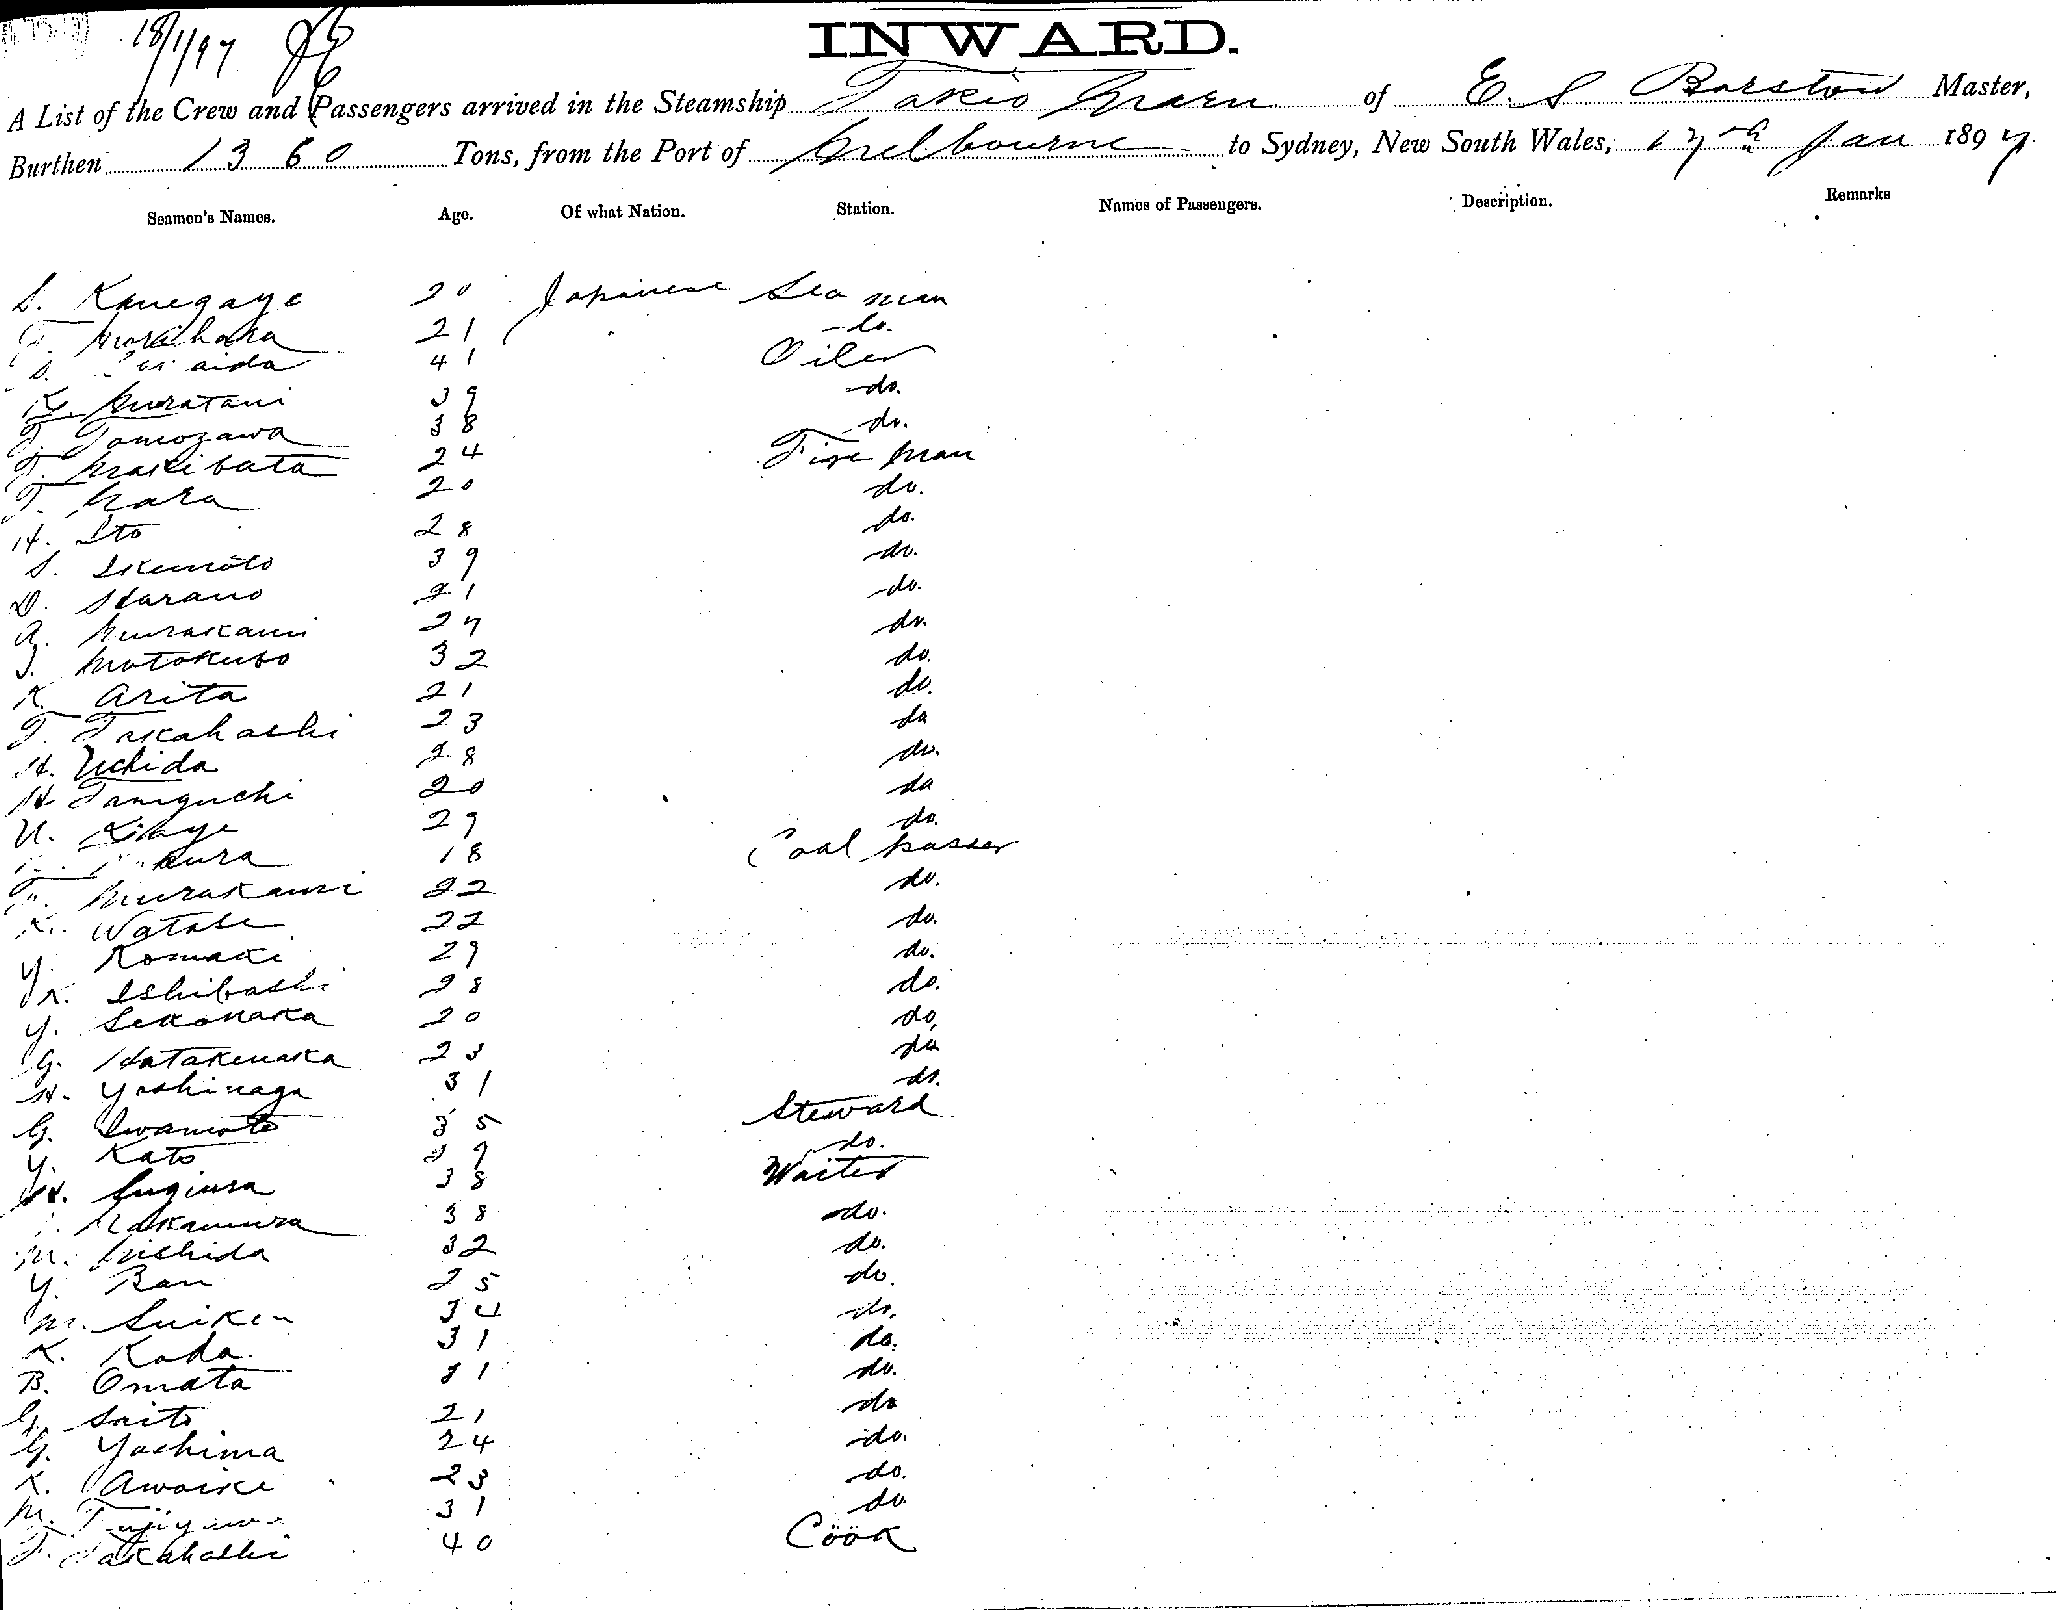 18/1/97
INWARD.
A List of the Crew and Passengers arrived in the Steamship Tokio Maru of E. S Barstow Master,
Burthen 1360 Tons, from the Port of Melbourne to Sydney, New South Wales, 17th Jan 1897.
Seamen's Names. Age. Of what Nation. Station. Names of Passengers. Description. Remarks
S. Kanegaye 20 Japanese Sea man
T. Murahara 21 do.
S. 41 Oiler
K. Muratani 39 do.
T. Tomozawa 38 do.
T. Makibata 24 Fire Man
T. Nara 20 do.
H. Ito 28 do.
S. Ikemoto 39 do.
D. Harano 21 do.
A. Murakami 27 do.
I. Motokubo 32 do.
K. Arita 21 do.
T. Takahashi 23 do
H. Uchida 28 do.
H Taniguchi 20 do
U. 29 do.
18 Coal passer
T. Murakami 22 do.
K. Watabe 22 do.
Y. Komaki 29 do.
K. Ishibashi 28 do.
Y. Sekonaka 20 do,
G. Hatakenaka 23 do
H. Yoshinaga 31 do.
G. Iwamoto 35 Steward
Y. Kato 39 do.
H. Sugiura 38 Waiter
Nakamura 38 do.
M. Nishida 32 do.
Y. Ban 25 do.
M. Suiken 34 do.
K. Koda. 31 do.
B. Omata 31 do.
G. Saito 21 do
G. Yoshima 24 do.
K. Awoike 23 do.
M. 31 do
T. Takahashi 40 Cook